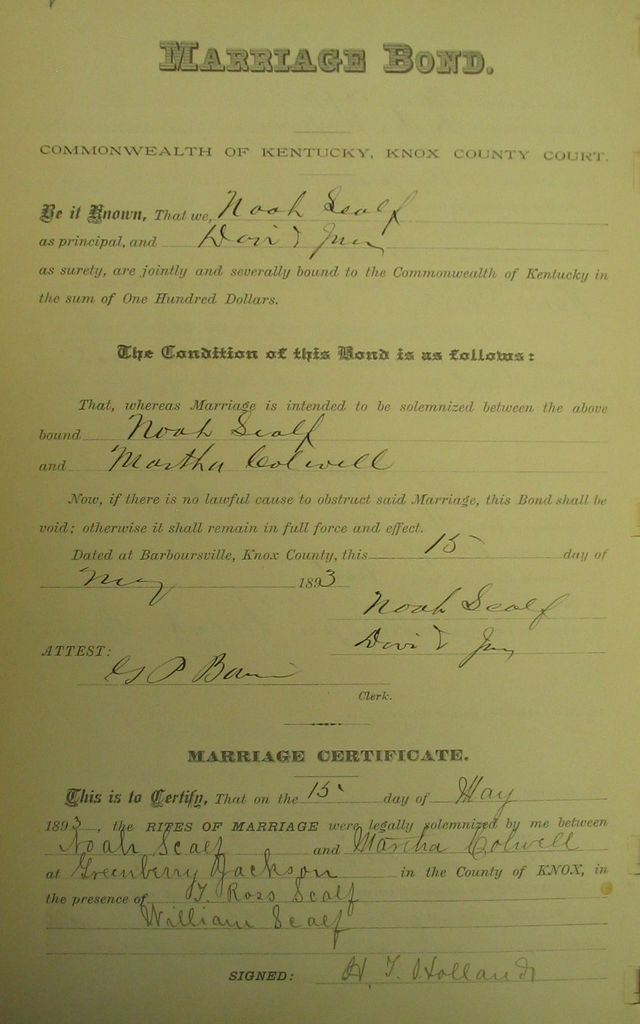 MARRIAGE BOND.
COMMONWEALTH OF KENTUCKY, KNOX COUNTY COURT.
Be it Known, That we, Noah Scalf
as principal, and David
as surety, are jointly and severally bound to the Commonwealth of Kentucky in
the sum of One Hundred Dollars.
The Condition of this Bond is as follows:
That, whereas Marriage is intended to be solemnized between the above
bound Noah Scalf
and Martha Colwell
Now, if there is no lawful cause to obstruct said Marriage, this Bond shall be
void; otherwise it shall remain in full force and effect.
Dated at Barboursville, Knox County, this 15 day of
May 1893
Noah Scalf
ATTEST: David
G P
Clerk.
MARRIAGE CERTIFICATE.
This is to Certify, That on the 15 day of May
1893, the RITES OF MARRIAGE were legally solemnized by me between
Noah Scalf and Martha Colwell
at Greenberry Jackson in the County of KNOX, in
the presence of T. Ross Scalf
William Scalf
SIGNED: H. T. Holland